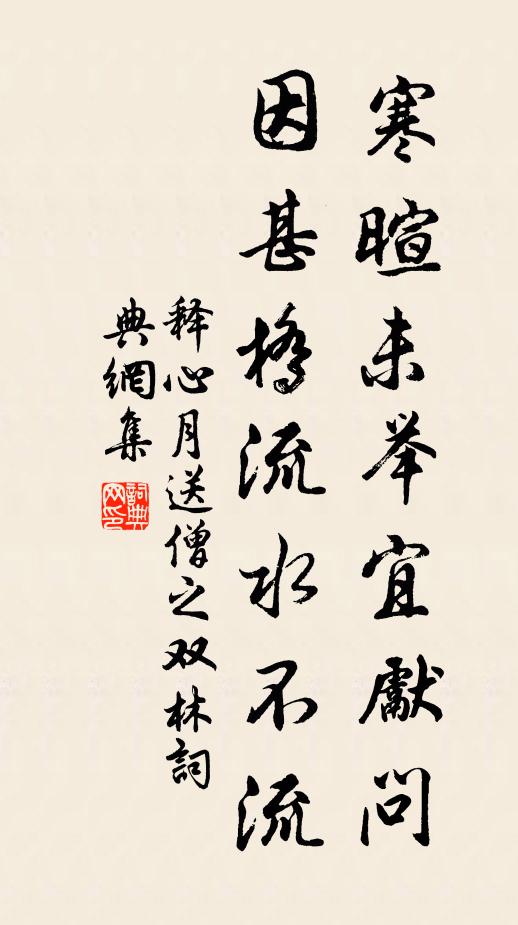 寒暄未举宜獻问
因甚橋流水不流
释心月送僧之双林詞
典網集
詞典
网印